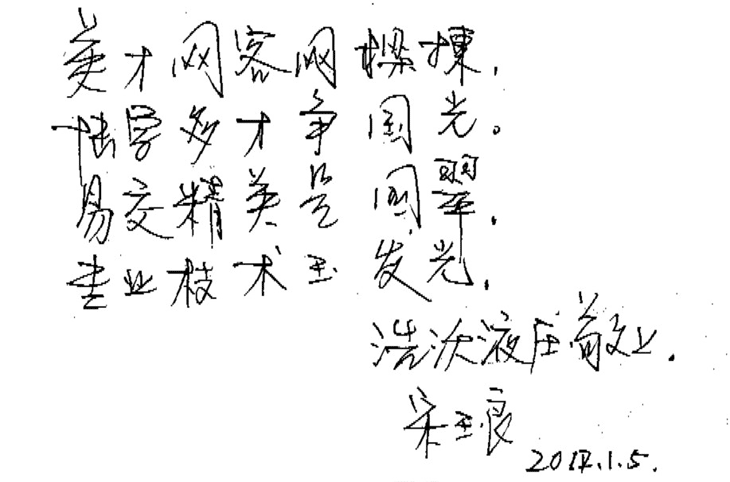 英才网客网樑揀，
博学多才争国光。
易交精英是国翠，
专业技术玉发光，
浩沃液压敬上．
宋玉良
2018.1.5.